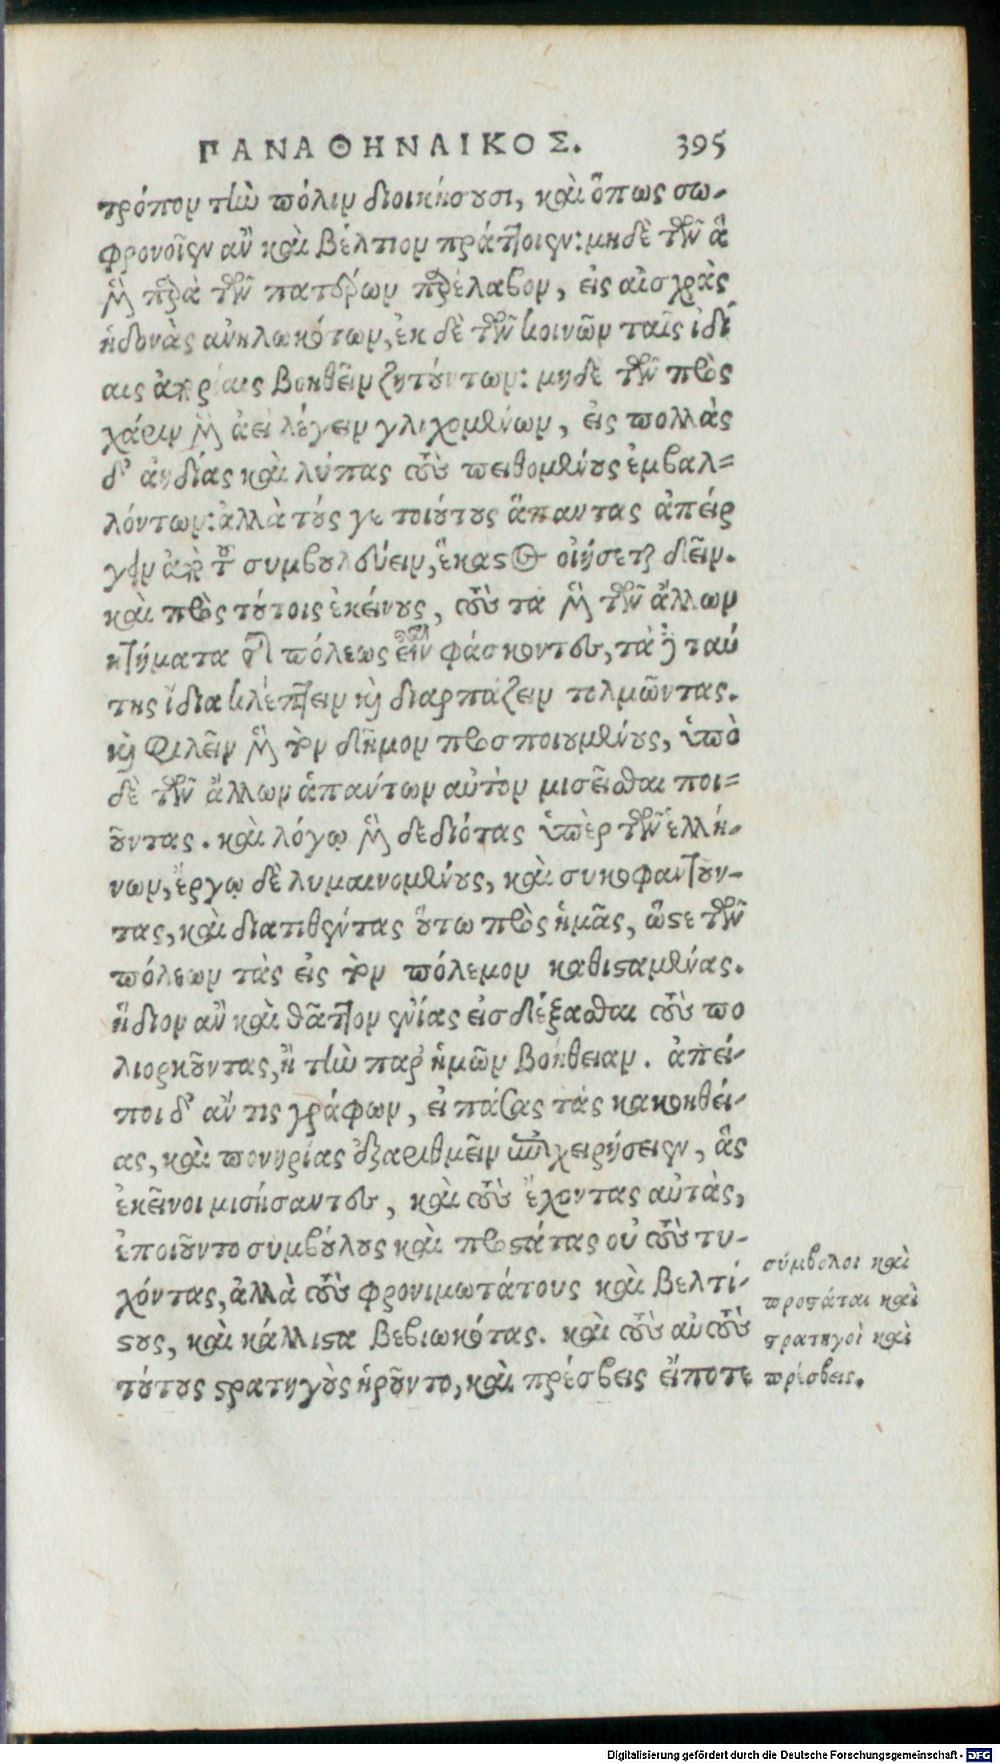 ΠΑΝΑΘΗΝΑΙΚΟΣ. 395
τρόπον τὴν πόλιν διοικήσουσι, καὶ ὅπως σω-
φρονοῖεν ἂν καὶ βέλτιον πράττοιεν: μηδὲ τῶν ἃ
μὲν παρὰ τῶν πατέρων παρέλαβον, εἰς αἰσχρὰς
ἡδονὰς ἀνηλωκότων, ἐκ δὲ τῶν κοινῶν ταῖς ἰδί
αις ἀπορίαις βοηθεῖν ζητούντων: μηδὲ τῶν πρὸς
χάριν μὲν ἀεὶ λέγειν γλιχομένων, εἰς πολλὰς
δ' ἀηδίας καὶ λύπας τοὺς πειθομένους ἐμβαλ=
λόντων: ἀλλὰ τούς γε τοιούτους ἅπαντας ἀπείρ
γειν ἀπὸ τοῦ συμβουλεύειν, ἕκαστος οἰήσεται δεῖν.
καὶ πρὸς τούτοις ἐκείνους, τοὺς τὰ μὲν τῶν ἄλλων
κτήματα τῆς πόλεως εἶναι φάσκοντας, τὰ δὲ ταύ
της ἴδια κλέπτειν καὶ διαρπάζειν τολμῶντας.
καὶ φιλεῖν μὲν τὸν δῆμον προσποιουμένους, ὑπὸ
δὲ τῶν ἄλλων ἁπάντων αὐτὸν μισεῖσθαι ποι=
οῦντας. καὶ λόγῳ μὲν δεδιότας ὑπὲρ τῶν ἑλλή-
νων, ἔργῳ δὲ λυμαινομένους, καὶ συκοφαντοῦν-
τας, καὶ διατιθέντας οὕτω πρὸς ἡμᾶς, ὥστε τῶν
πόλεων τὰς εἰς τὸν πόλεμον καθισταμένας.
ἥδιον ἂν καὶ θᾶττον ἐνίας εἰσδέξασθαι τοὺς πο
λιορκοῦντας, ἢ τὴν παρ' ἡμῶν βοήθειαν. ἀπεί-
ποι δ' ἄν τις γράφων, εἰ πάσας τὰς κακοηθεί-
ας, καὶ πονηρίας ἐξαριθμεῖν ἐπιχειρήσειεν, ἃς
ἐκεῖνοι μισήσαντες, καὶ τοὺς ἔχοντας αὐτὰς,
ἐποιοῦντο συμβούλους καὶ προστάτας οὐ τοὺς τυ-
χόντας, ἀλλὰ τοὺς φρονιμωτάτους καὶ βελτί-
στους, καὶ κάλλιστα βεβιωκότας. καὶ τοὺς αὐτοὺς
τούτους στρατηγοὺς ᾑροῦντο, καὶ πρέσβεις εἴποτε
σύμβολοι καὶ
προστάται καὶ
στρατηγοὶ καὶ
πρέσβεις.
Digitalisierung gefördert durch die Deutsche Forschungsgemeinschaft - DFG